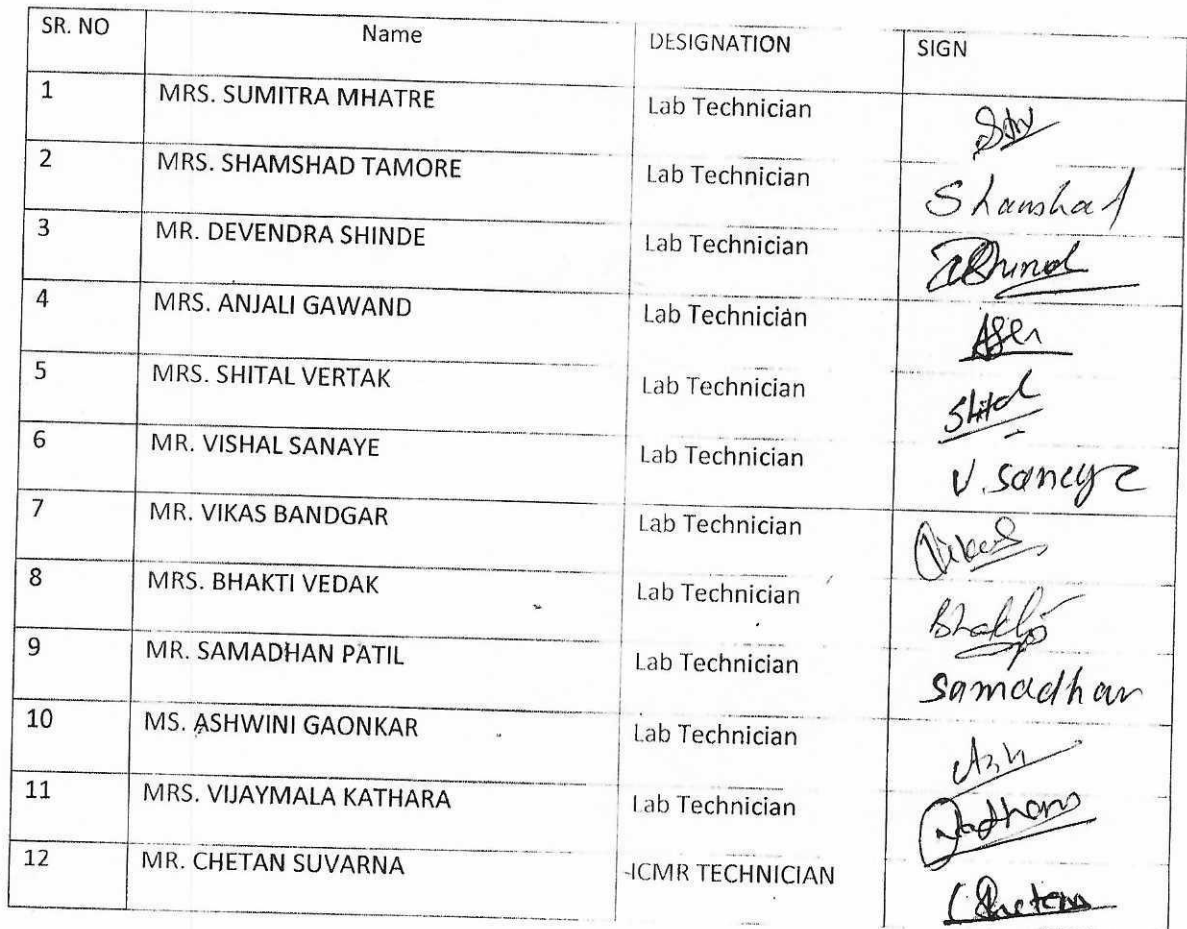 SR. NO Name DESIGNATION SIGN
1 MRS. SUMITRA MHATRE Lab Technician
2 MRS. SHAMSHAD TAMORE Lab Technician Shamshad
3 MR. DEVENDRA SHINDE Lab Technician
4 MRS. ANJALI GAWAND Lab Technician
5 MRS. SHITAL VERTAK Lab Technician Shital
6 MR. VISHAL SANAYE Lab Technician V. Sanaye
7 MR. VIKAS BANDGAR Lab Technician Vikas
8 MRS. BHAKTI VEDAK Lab Technician Bhakti
9 MR. SAMADHAN PATIL Lab Technician Samadhan
10 MS. ASHWINI GAONKAR Lab Technician Ash
11 MRS. VIJAYMALA KATHARA Lab Technician
12 MR. CHETAN SUVARNA ICMR TECHNICIAN Chetan